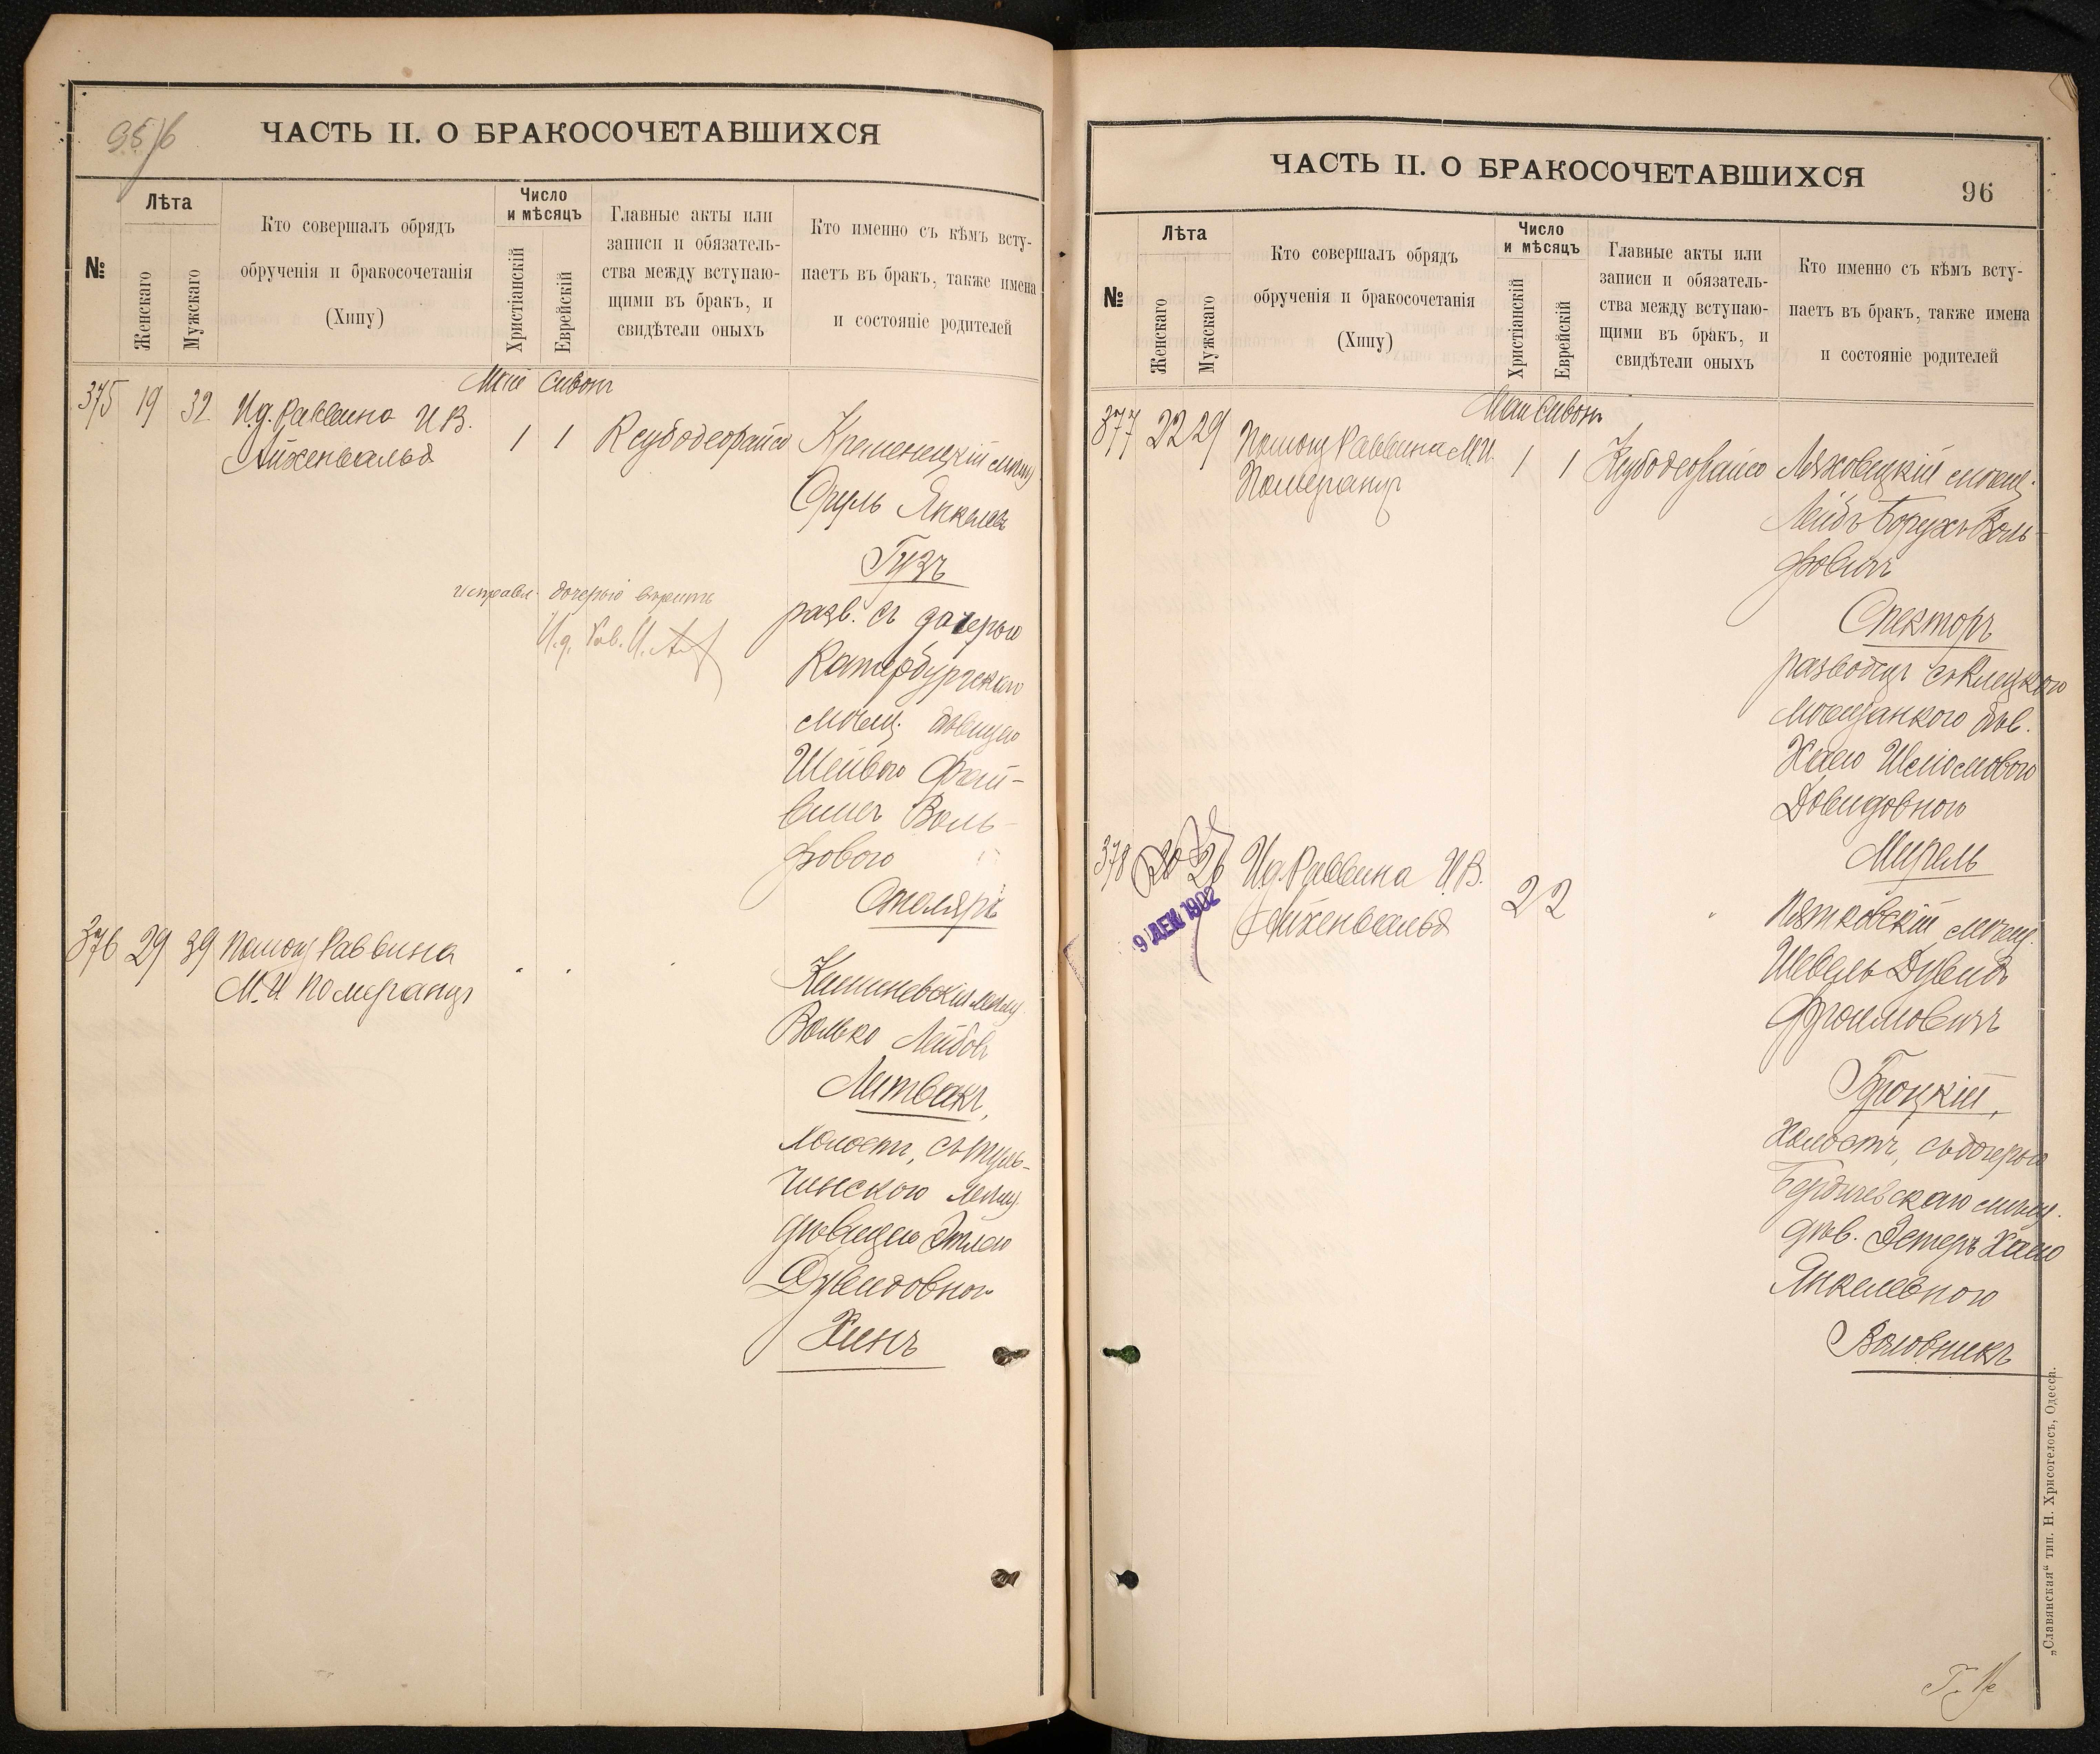 95/6
ЧАСТЬ II. О БРАКОСОЧЕТАВШИХСЯ
№
Лѣта
Женскаго
Мужскаго
Кто совершалъ обрядъ
обрученія и бракосочетанія
(Хипу)
Число
и мѣсяцъ
Христіанскій
Еврейскій
Главные акты или
записи и обязатель-
ства между вступаю-
щими въ бракъ, и
свидѣтели оныхъ
Кто именно съ кѣмъ всту-
паетъ въ бракъ, также имена
и состояніе родителей
Май Сивон
375 19 32 И.д. Раввина И.В.
Айхенвальд
1 1 Ксубодеорайсо
Кременецкій мѣщ
Сруль Янкелев
Гузъ
разв. съ дочерью
Катербургскаго
мѣщ. дѣвицею
Шейвою Фай-
вишъ Воль-
фовою
Столяръ
исправл. дочерью вѣрить
И.д. Рав. И.
376 29 39 Помощ Раввина
М.И Померанцъ
Кишиневскій мѣщ.
Волько Лейбов
Литвакъ,
холостъ, съ туль-
чинскою мѣщ.
дѣвицею Этлею
Дувидовною
Хинъ
ЧАСТЬ II. О БРАКОСОЧЕТАВШИХСЯ
96
№
Лѣта
Женскаго
Мужскаго
Кто совершалъ обрядъ
обрученія и бракосочетанія
(Хипу)
Число
и мѣсяцъ
Христіанскій
Еврейскій
Главные акты или
записи и обязатель-
ства между вступаю-
щими въ бракъ, и
свидѣтели оныхъ
Кто именно съ кѣмъ всту-
паетъ въ бракъ, также имена
и состояніе родителей
Май Сивон
377 22 29 Помощ Раввина М.И.
Померанцъ
1 1 Ксубодеорайсо
Ляховецкій мѣщ.
Лейбъ Борухъ Воль-
фовичъ
Спекторъ
разводецъ съ Клецкою
мѣщанкою дѣв.
Хаею Шеломовою
Довидовною
Мирель
378 20 26 И.д. Раввина И.В.
Айхенвальд
2 2
9 ДЕК 1902
Пятковскій мѣщ.
Шевель Дувид
Фроимовичъ
Гроцкій,
Холостъ, съ дочерью
Бердичевскаго мѣщ.
дѣв. Эстеръ Хаею
Янкелевною
Воловникъ
„Славянская“ тип. Н. Хрисогелосъ, Одесса.